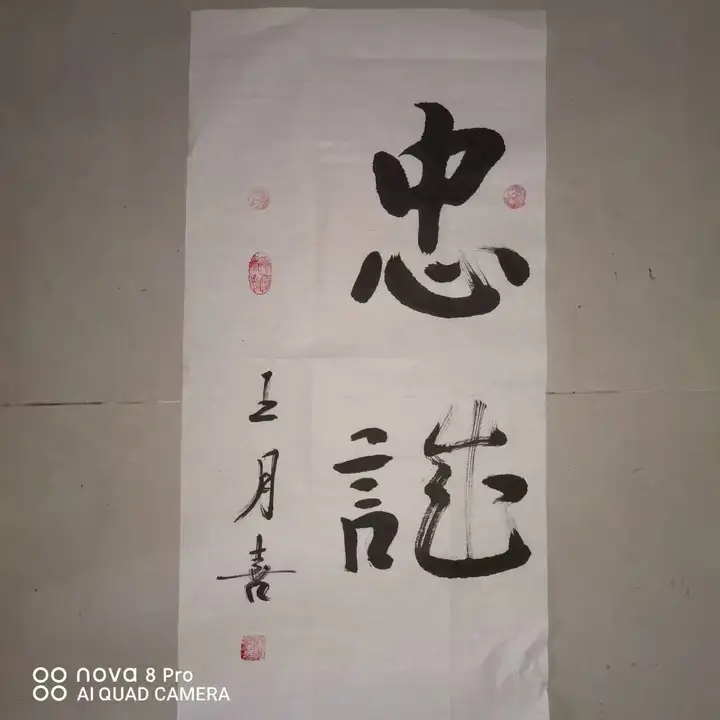 忠
誠
王月喜
nova 8 Pro
AI QUAD CAMERA